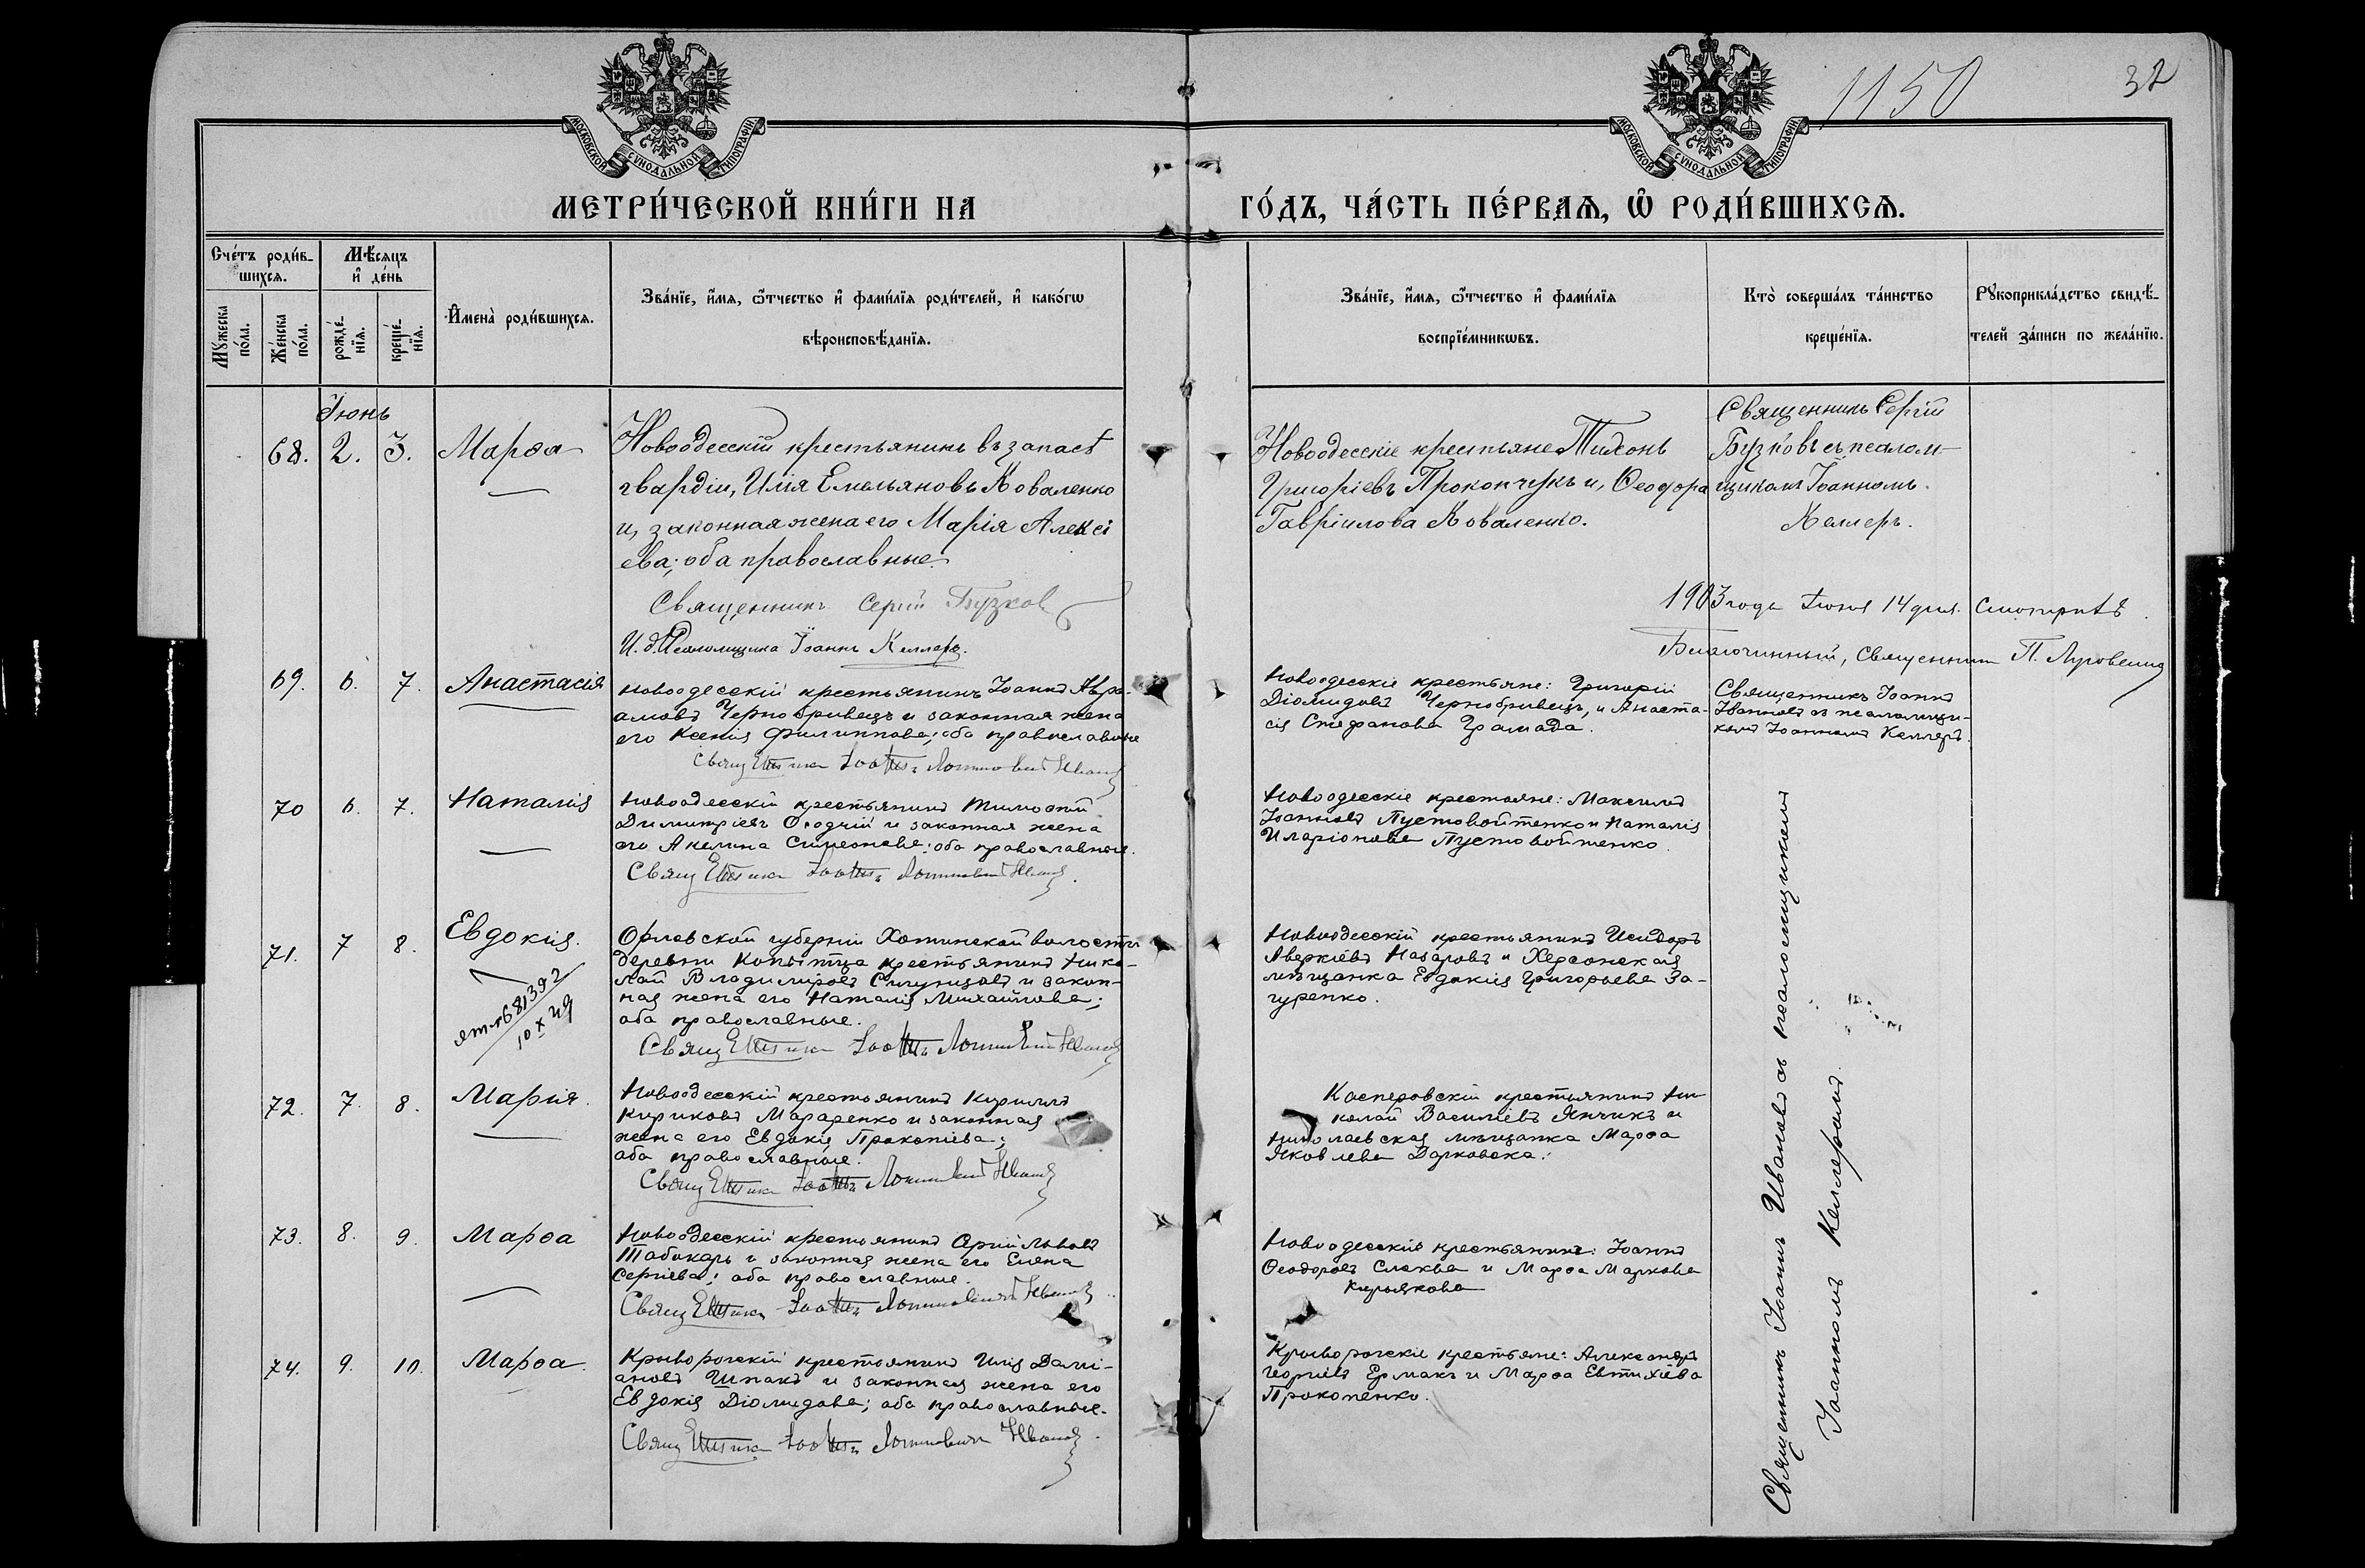 1150
32
МОСКОВСКОЙ СѴНОДАЛЬНОЙ ТИПОГРАФІИ
МОСКОВСКОЙ СѴНОДАЛЬНОЙ ТИПОГРАФІИ
МЕТРИ́ЧЕСКОЙ КНИ́ГИ НА
ГО́ДЪ, ЧА́СТЬ ПЕ́РВАѦ, Ѡ҆ РОДИ́ВШИХСѦ.
Сче́тъ роди́в-
шихсѧ.
Мꙋ́жеска по́ла.
Же́нска по́ла.
Мѣ́сѧцъ
и҆ де́нь
рожде́-
нїѧ.
креще́-
нїѧ.
И҆мена̀ роди́вшихсѧ.
Зва́нїе, и҆́мѧ, ѻ҆́тчество и҆ фами́лїѧ роди́телей, и҆ како́гѡ
вѣроисповѣ́данїѧ.
Зва́нїе, и҆́мѧ, ѻ҆́тчество и҆ фами́лїѧ
воспрїе́мникѡвъ.
Кто̀ соверша́лъ та́инство
креще́нїѧ.
Рꙋкоприкла́дство свидѣ́-
телей за́писи по жела́нїю.
Іюнь
68. 2. 3. Марѳа
Новоодесскій крестьянинъ въ запасѣ
гвардіи, Илія Емельяновъ Коваленко
и, законная жена его Марія Алексі
ева; оба православные.
Священникъ Сергій Бузков
И. д. Псаломщика Іоаннъ Келлеръ.
Новоодесскіе крестьяне Тихонъ
Григоріевъ Прокопчукъ и, Ѳеодора
Гавріилова Коваленко.
Священникъ Сергій
Бузковъ съ псалом-
щикомъ Іоанномъ
Келлеръ.
1903 года Іюня 14 дня. Смотрѣлъ
Благочинный, Священник П.
69. 6. 7. Анастасія
Новоодесскій крестьянинъ Іоаннъ Авра-
амовъ Чернобривецъ и законная жена
его Ксенія Филиппова; оба православные
Священник Іоаннъ Логгиновичъ Иванов
Новоодесскіе крестьяне: Григорій
Діомидовъ Чернобривецъ, и Анаста-
сія Стефанова Грамада.
Священникъ Іоаннъ
Ивановъ съ псаломщи-
комъ Іоанномъ Келлеръ.
70 6. 7. Наталія
Новоодесскій крестьянинъ Тимоѳей
Димитріевъ Ободчій и законная жена
его Акелина Симеонова; оба православные.
Священник Іоаннъ Логгиновичъ Иванов
Новоодесскіе крестьяне: Максимъ
Іоанновъ Пустовойтенко и Наталія
Иларіонова Пустовойтенко.
71. 7 8. Евдокія.
681392
10 X 49
Орловской губерніи Хотинской волости
деревни Копытца крестьянинъ Нико-
лай Владиміровъ и закон-
ная жена его Наталія Михайлова;
оба православные.
Священник Іоаннъ Логгиновичъ Иванов
Новоодесскій крестьянинъ Исидоръ
Аверкіевъ Назаровъ и Херсонская
мѣщанка Евдокія Григорьева За-
чуренко.
72. 7. 8. Марія.
Новоодесскій крестьянинъ Кириллъ
Кириковъ Мараренко и законная
жена его Евдокія Прокопіева;
оба православные.
Священник Іоаннъ Логгиновичъ Иванов
Касперовскій крестьянинъ Ни-
колай Василіевъ Янчикъ и
Николаевская мѣщанка Марѳа
Яковлева Дарковска.
73. 8. 9. Марѳа
Новоодесскій крестьянинъ Сергій Львовъ
Табакарь и законная жена его Елена
Сергіева; оба православные.
Священник Іоаннъ Логгиновичъ Иванов
Новоодесскіе крестьянинъ: Іоаннъ
Ѳеодоровъ Слаква и Марѳа Маркова
Кирьякова
74. 9. 10. Марѳа
Криворогскій крестьянинъ Илія Дамі-
ановъ Шпакъ и законная жена его
Евдокія Діомидова; оба православные.
Священник Іоаннъ Логгиновичъ Иванов
Криворогскіе крестьяне: Александръ
Георгіевъ Ермакъ и Марѳа Евтихіева
Прокопенко.
Священникъ Іоаннъ Ивановъ съ псаломщикомъ
Іоанномъ Келлеромъ.